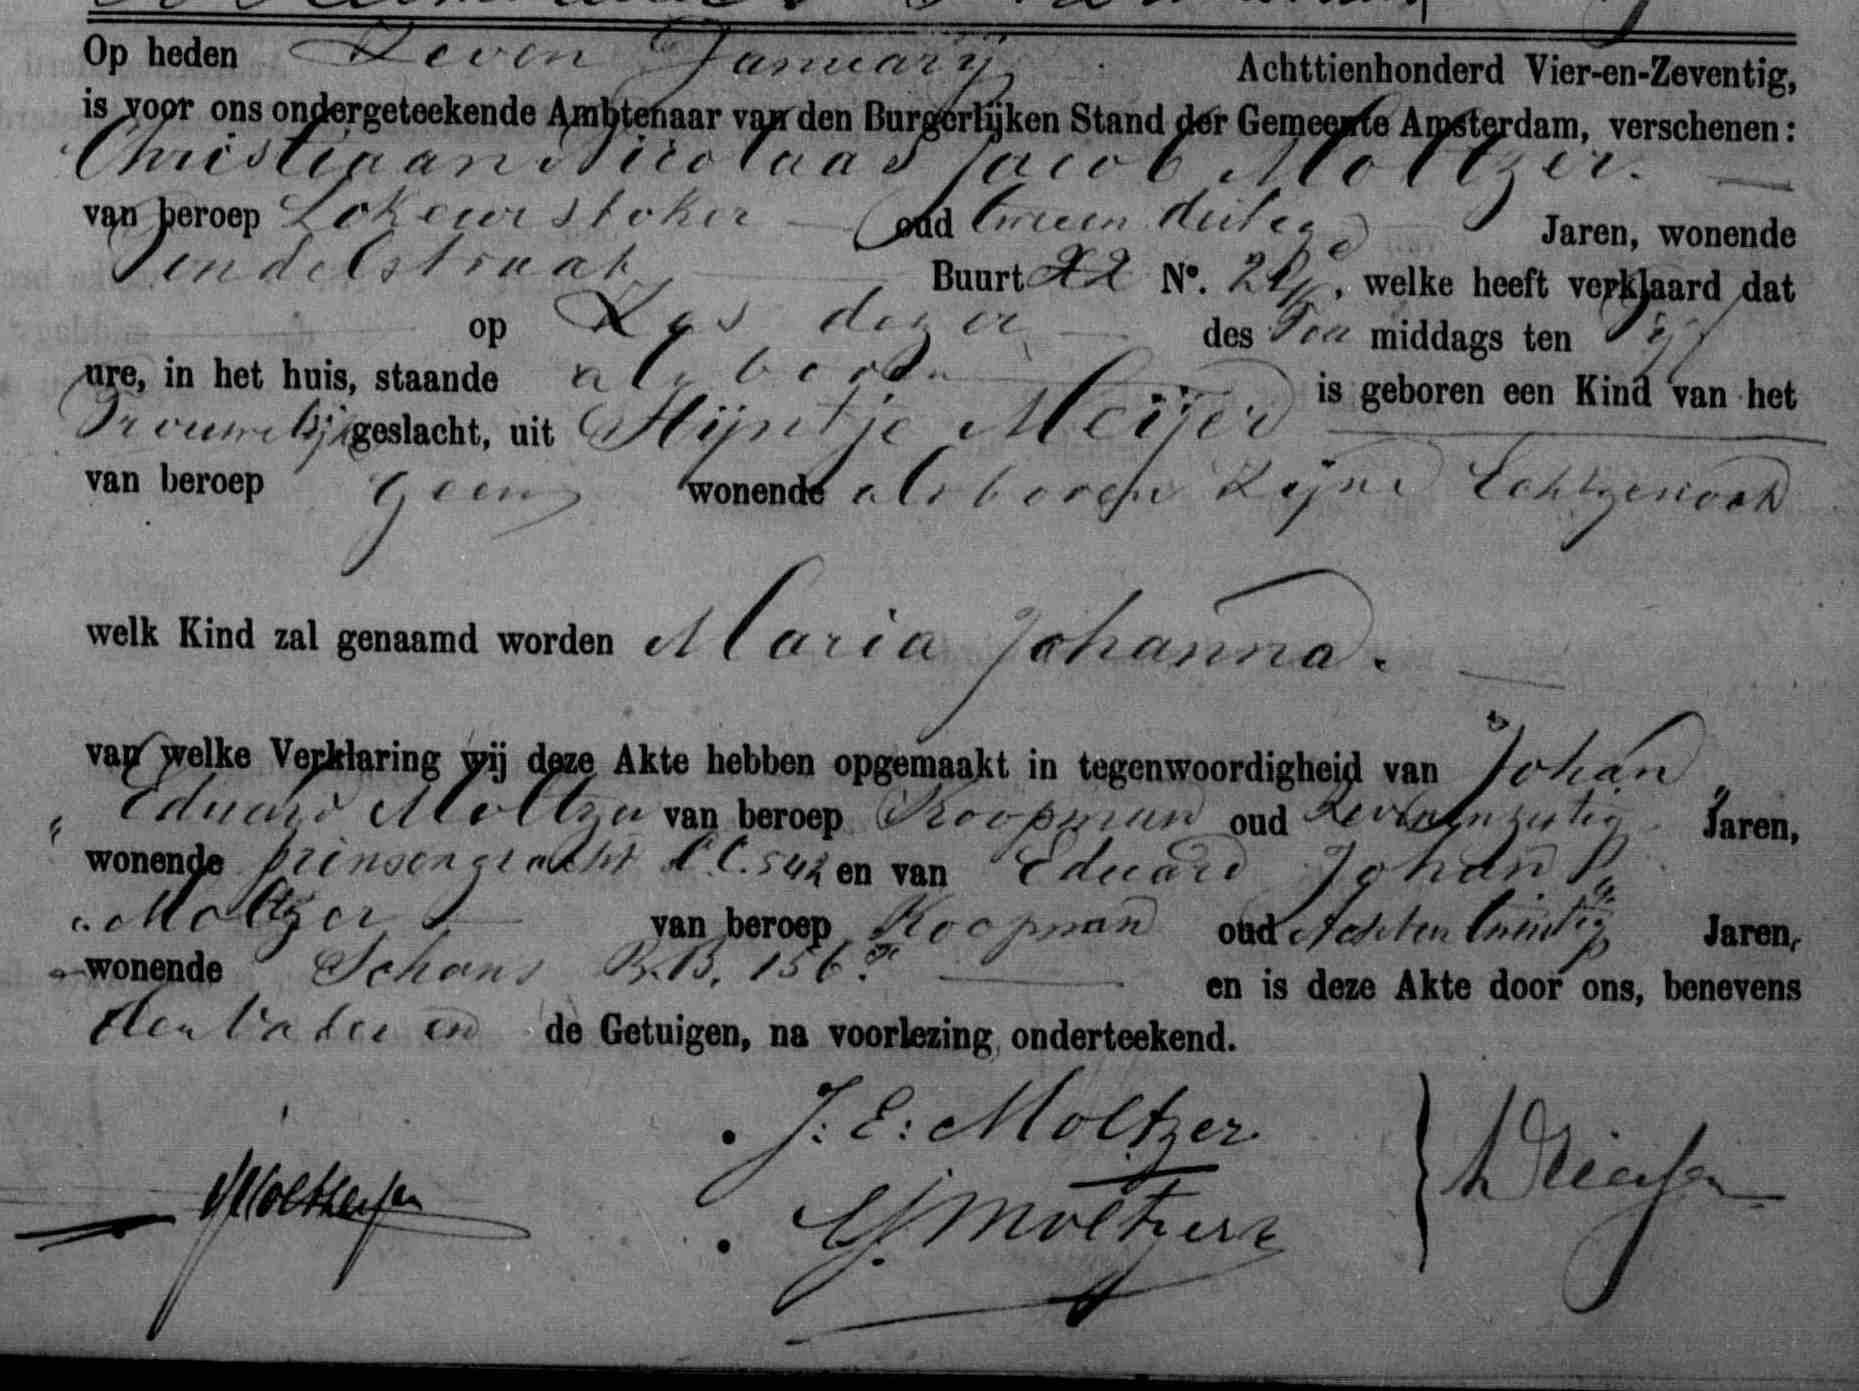 Op heden Zeven Januarij Achttienhonderd Vier-en-Zeventig,
is voor ons ondergeteekende Ambtenaar van den Burgerlijken Stand der Gemeente Amsterdam, verschenen:
Christiaan Nicolaas Jacob Moltzer.
van beroep Lokeurstoker oud tweeen dertig Jaren, wonende
Vendelstraat Buurt N°. welke heeft verklaard dat
op Zes dezer des Voor middags ten Vijf
ure, in het huis, staande als boven is geboren een Kind van het
Vrouwelijk geslacht, uit Stijntje Meijer
van beroep geen wonende als boven Zijne Echtgenoot
welk Kind zal genaamd worden Maria Johanna.
van welke Verklaring wij deze Akte hebben opgemaakt in tegenwoordigheid van Johan
Eduard Moltzer van beroep Koopman oud Jaren,
wonende prinsengracht 542 en van Eduard Johan
Moltzer van beroep Koopman oud Achten twintig Jaren,
wonende Schans B.B. 156 en is deze Akte door ons, benevens
den Vader en de Getuigen, na voorlezing onderteekend.
J: E: Moltzer
EJ Moltzer